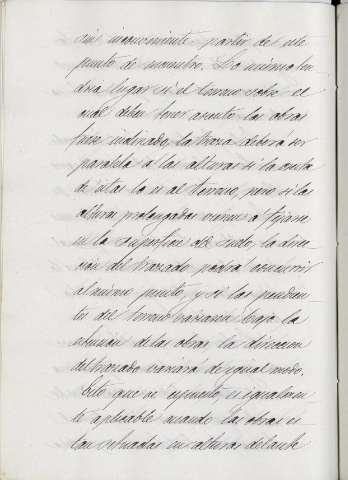 sin inconveniente partir de este
punto de momento. Lo mismo ten
dria lugar si el terreno sobre el
cual deben tener asiento las obras
fuese inclinado, la traza deberá ser
paralela a las alturas si la cresta
de estas lo es al terreno, pero si las
alturas prolongadas vienen á fijarse
en la superficie del suelo, la direc-
cion del trazado podrá concurrir
al mismo punto, y si las pendien-
tes del terreno variasen bajo la
estension de las obras la direccion
del trazado variará de igual modo.
Esto que es espuesto, es igualmen
te aplicable cuando las obras es
tan situadas en alturas delante